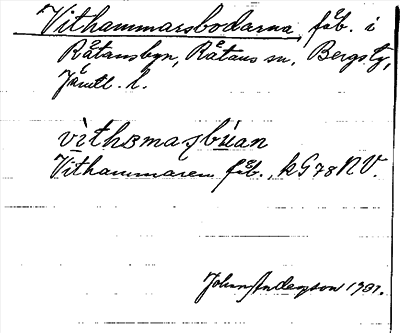 Vithammarsbodarna, fäb. i
Råtansbyn, Råtans sn, Bergs tg,
Jämtl. l.
vithɜmaʃbùan
Vithammaren fäb., kG78NV.
John Anderson 1981.